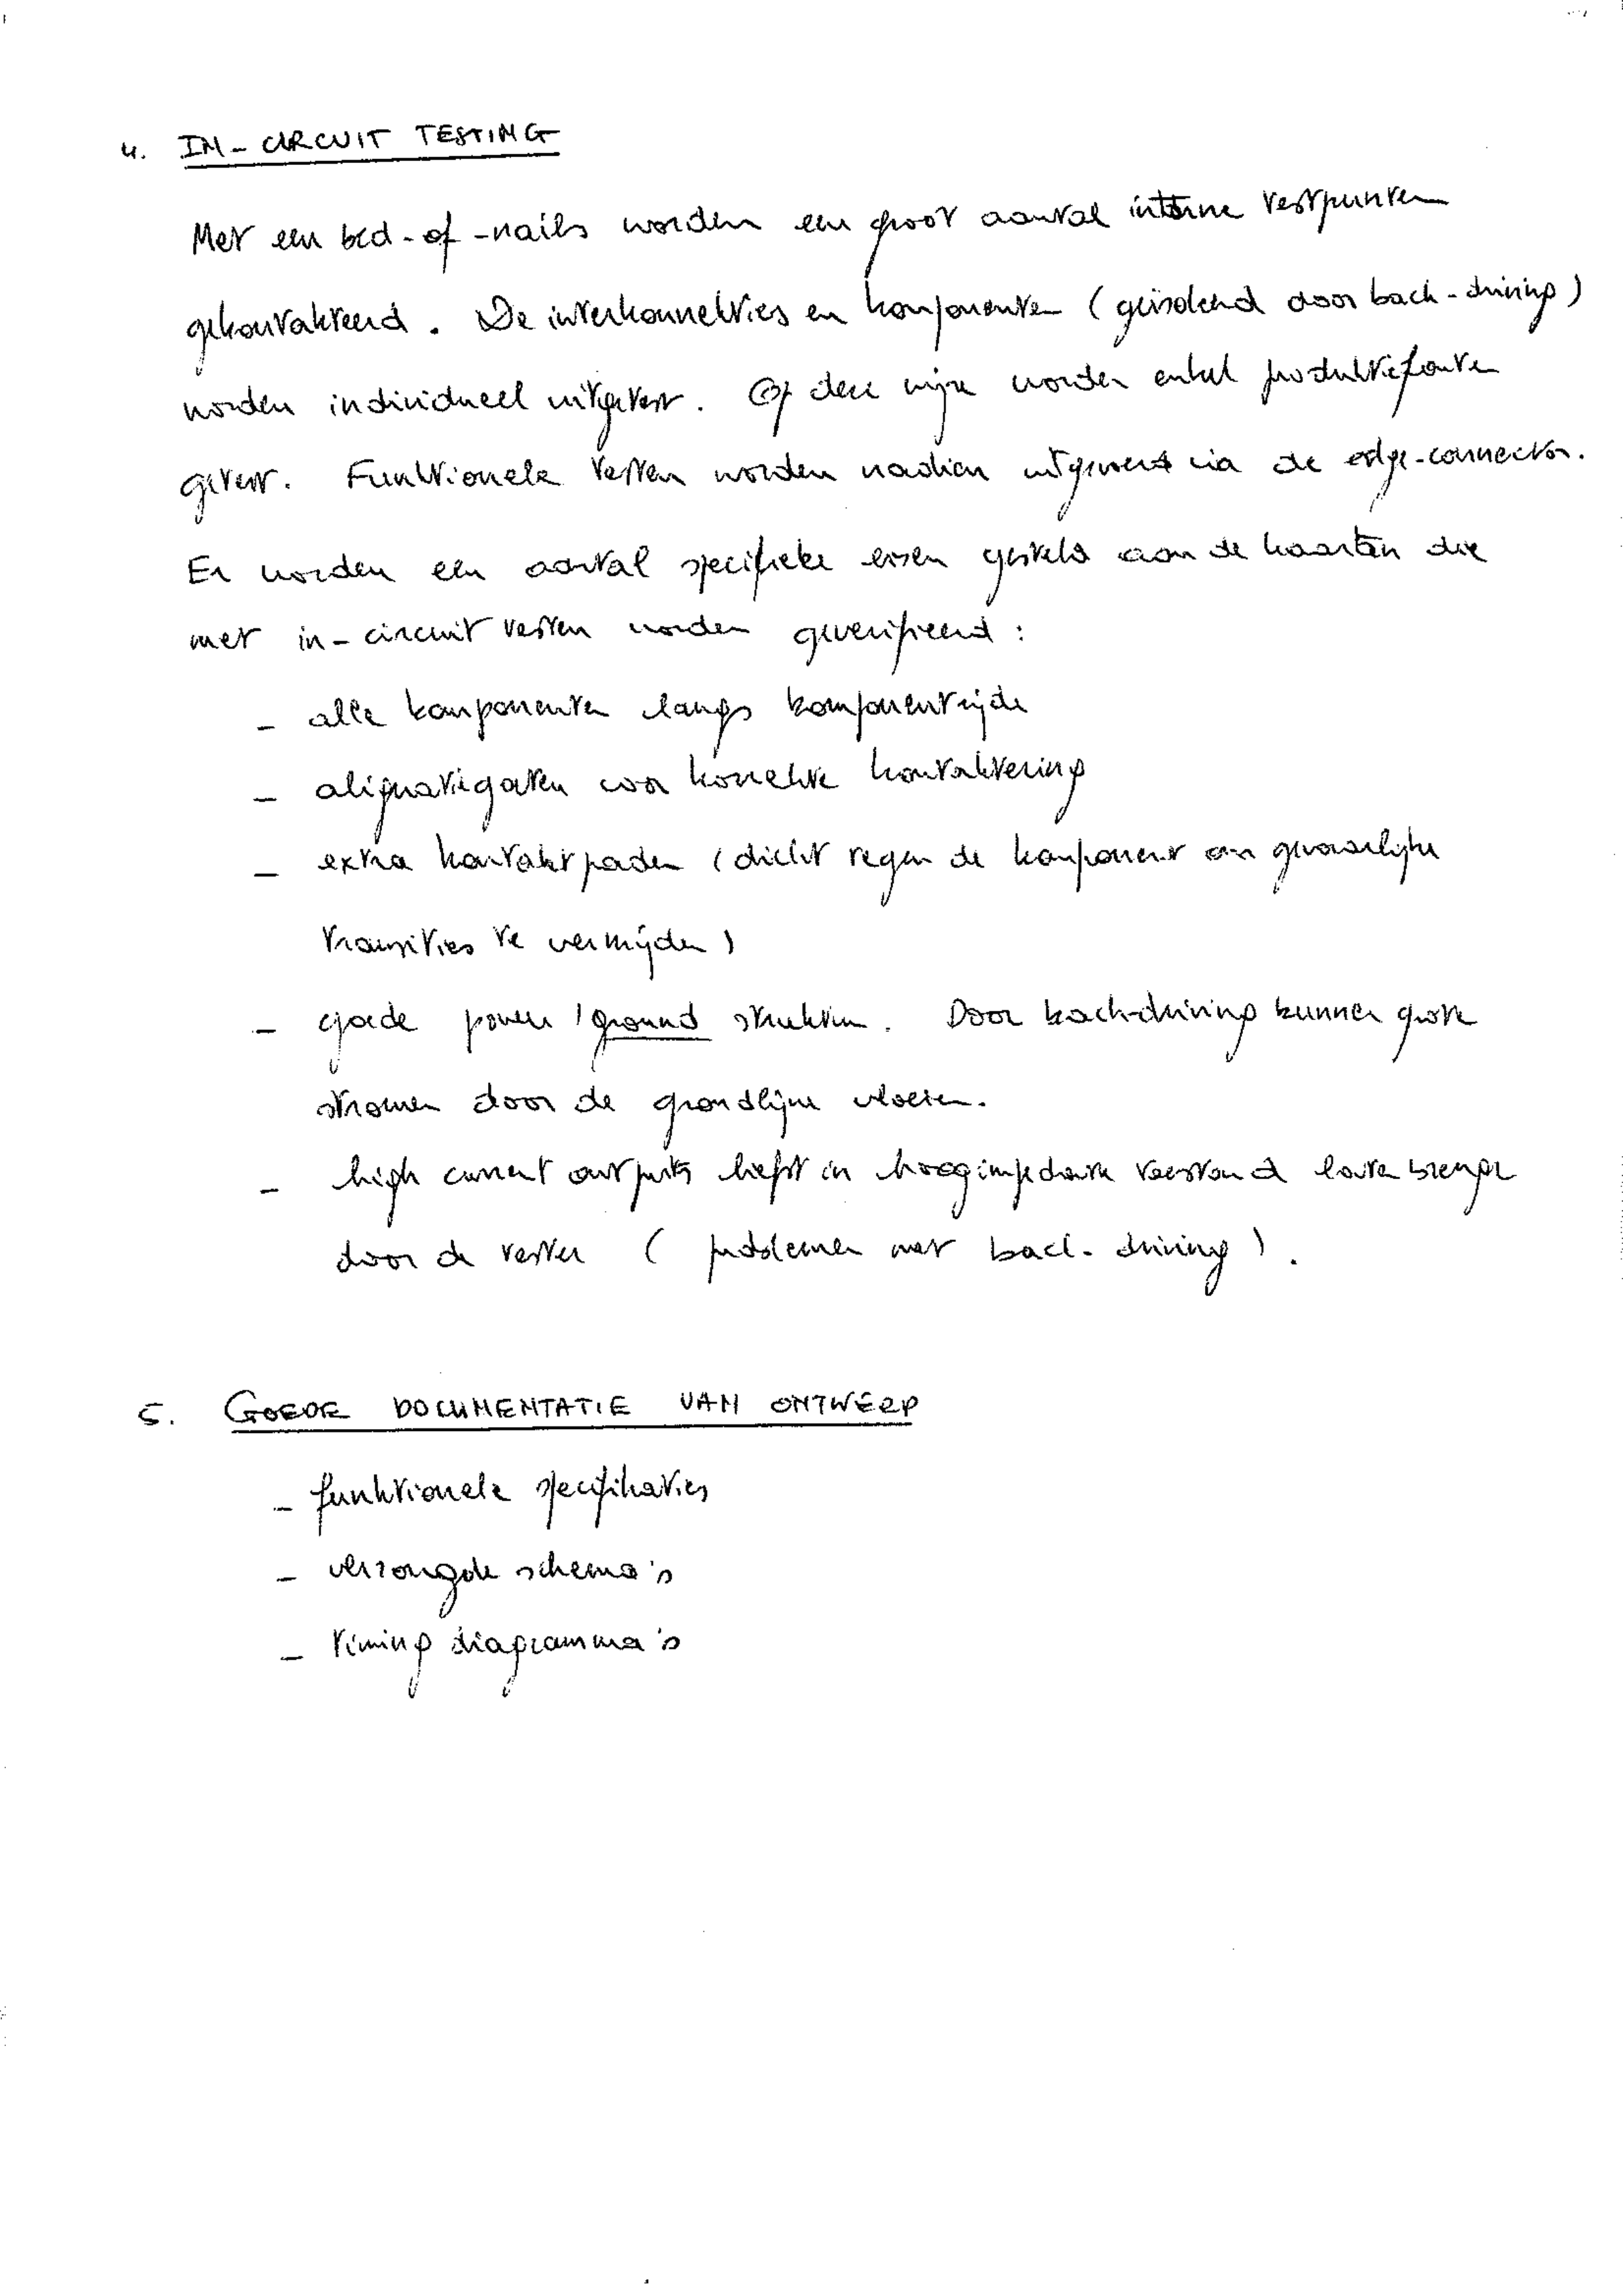 4. IN-CIRCUIT TESTING
Met een bed-of-nails worden een groot aantal interne testpunten
gekontakteerd. De interkonnekties en komponenten (geïsoleerd door back-driving)
worden individueel uitgetest. Op deze wijze worden enkel produktiefouten
getest. Funktionele testen worden nadien uitgevoerd via de edge-connector.
Er worden een aantal specifieke eisen gesteld aan de kaarten die
met in-circuit testen worden geverifieerd :
- alle komponenten langs komponentzijde
- alignatiegaten voor korrekte kontaktering
- extra kontaktpaden (dicht tegen de komponent om gevaarlijke
transities te vermijden)
- goede power/ground struktuur. Door back-driving kunnen grote
stromen door de grondlijnen vloeien.
- high current outputs liefst in hoogimpedante toestand laten brengen
door de tester (problemen met back-driving).
5. GOEDE DOCUMENTATIE VAN ONTWERP
- funktionele specifikaties
- verzorgde schema's
- timing diagramma's